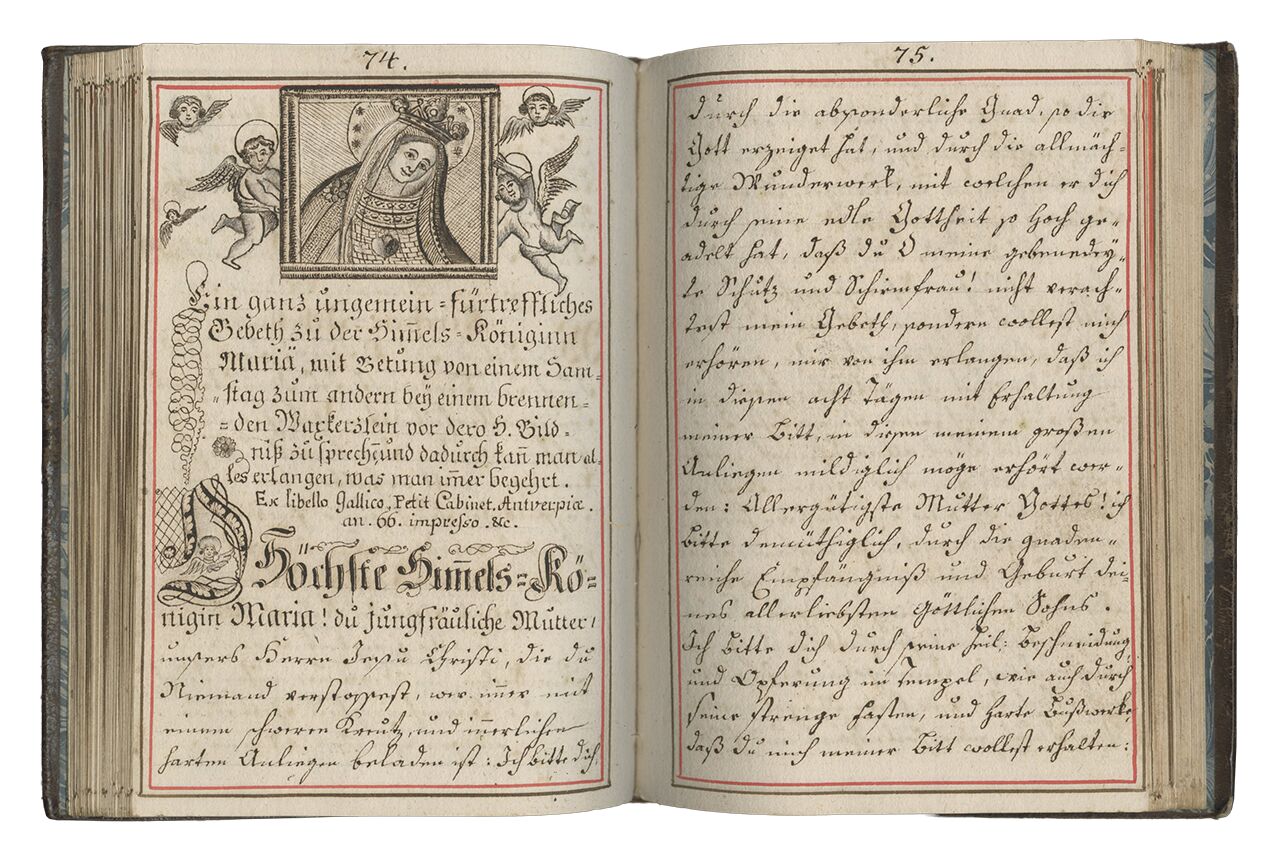 74.
Ein ganz ungemein=fürtreffliches
Gebeth zu der Him̅els=Königinn
Mariä, mit Betung von einem Sam=
stag zum andern bey einem brennen=
=den Waxkerzlein vor dero H. Bild=
nuß zu sprechen, und dadurch kan̅ man al=
les erlangen, was man im̅er begehrt.
Ex libello Gallico, Petit Cabinet. Antverpiæ.
an. 66. impresso. &c.
O Höchste Him̅els=Kö=
nigin Maria! du jungfräuliche Mutter
unsers Herrn Jesu Christi, die du
Niemand verstossest, wer im̅er mit
einem schweren Kreutz, und in̅erlichen
harten Anliegen beladen ist: Ich bitte dich,
75.
durch die absonderliche Gnad, so die
Gott erzeiget hat, und durch die allmäch=
tige Wunderwerk, mit welchen er dich
durch seine edle Gottheit so hoch ge=
adelt hat, daß du O meine gebenedey=
te Schutz und Schirmfrau! nicht verach=
test mein Gebeth, sondern wollest mich
erhören, mir von ihm erlangen, daß ich
in diesen acht Tägen mit Erhaltung
meiner Bitt, in diesen meinem großen
Anliegen mildiglich möge erhört wer=
den: Allergütigste Mutter Gottes! ich
bitte demüthiglich, durch die gnaden=
reiche Empfängniß und Geburt dei=
nes allerliebsten Göttlichen Sohns.
Ich bitte dich durch seine heil: Beschneidung,
und Opferung im Tempel, wie auch durch
seine strenge Fasten, und harte Bußwerke,
daß du mich meiner Bitt wollest erhalten: